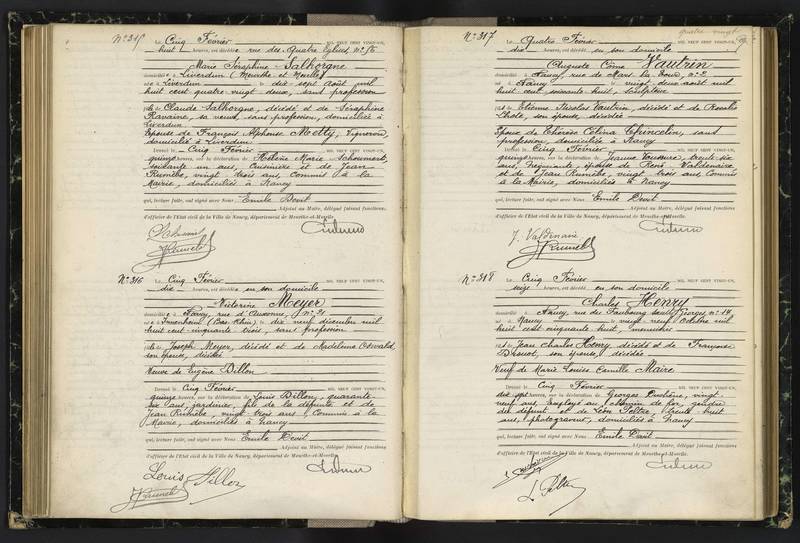 N° 315
Le Cinq Février MIL NEUF CENT VINGT-UN,
huit heures, est décédée rue des Quatre Eglises, n° 56
Marie Séraphine Salhorgne
domiciliée à Liverdun (Meurthe et Moselle)
née à Liverdun le dix sept août mil
huit cent quatre vingt deux, sans profession
fille de Claude Salhorgne, décédé et de Séraphine
Ravaine, sa veuve, sans profession, domiciliée à
Liverdun
Epouse de François Alphonse Metty, vigneron,
domicilié à Liverdun.
Dressé le Cinq Février MIL NEUF CENT VINGT-UN,
quinze heures, sur la déclaration de Hélène Marie
soixante un ans, cuisinière et de Jean
vingt trois ans, Commis à la
Mairie, domiciliés à Nancy
qui, lecture faite, ont signé avec Nous Emile Devit
Adjoint au Maire, délégué faisant fonctions
d'officier de l'État civil de la Ville de Nancy, département de Meurthe-et-Moselle.
N° 316
Le Cinq Février MIL NEUF CENT VINGT-UN,
dix heures, est décédée en son domicile
Victorine Meyer
domiciliée à Nancy, rue d'Auxonne, n° 21
née à (Bas Rhin) le dix neuf décembre mil
huit cent cinquante trois, sans profession
fille de Joseph Meyer, décédé et de Madeleine Oswald,
son épouse, décédée
Veuve de Eugène Dillon
Dressé le Cinq Février MIL NEUF CENT VINGT-UN,
quinze heures, sur la déclaration de Louis Dillon, quarante
ans, jardinier, fils de la défunte et de
Jean vingt trois ans, Commis à la
Mairie, domiciliés à Nancy
qui, lecture faite, ont signé avec Nous Emile Devit
Adjoint au Maire, délégué faisant fonctions
d'officier de l'État civil de la Ville de Nancy, département de Meurthe-et-Moselle.
Louis Dillon
quatre vingt
N° 317
Le Quatre Février MIL NEUF CENT VINGT-UN,
dix heures, est décédé en son domicile
Auguste Côme Vautrin
domicilié à Nancy, rue de Mars la Tour, n° 2
né à Nancy le vingt deux août mil
huit cent soixante huit, sculpteur
fils de Etienne Nicolas Vautrin, décédé et de Rosalie
son épouse, décédée
Epoux de Thérèse Célina Chincelin, sans
profession, domiciliée à Nancy
Dressé le Cinq Février MIL NEUF CENT VINGT-UN,
quinze heures, sur la déclaration de Jeanne trente six
ans, épouse de René Valdenaire
et de Jean vingt trois ans, Commis
à la Mairie, domiciliés à Nancy
qui, lecture faite, ont signé avec Nous Emile Devit
Adjoint au Maire, délégué faisant fonctions
d'officier de l'État civil de la Ville de Nancy, département de Meurthe-et-Moselle.
J. Valdenaire
N° 318
Le Cinq Février MIL NEUF CENT VINGT-UN,
seize heures, est décédé en son domicile
Charles Henry
domicilié à Nancy, rue du Faubourg Saint Georges, n° 14
né à Nancy le vingt neuf Octobre mil
huit cent cinquante huit, menuisier
fils de Jean Charles Henry, décédé et de Françoise
son épouse, décédée
Veuf de Marie Louise Camille Maire
Dressé le Cinq Février MIL NEUF CENT VINGT-UN,
dix sept heures, sur la déclaration de Georges Duchêne, vingt
neuf ans, employé au Chemin de fer, gendre
du défunt et de Léon Peltre, trente huit
ans, photograveur, domiciliés à Nancy
qui, lecture faite, ont signé avec Nous Emile Devit
Adjoint au Maire, délégué faisant fonctions
d'officier de l'État civil de la Ville de Nancy, département de Meurthe-et-Moselle.
L. Peltre